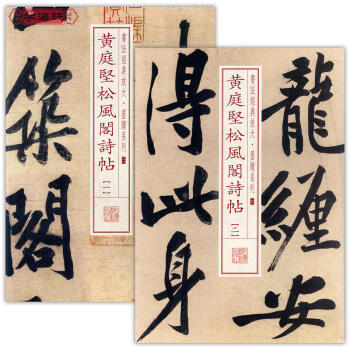 書法經典放大·墨蹟系列
黃庭堅松風閣詩帖
【一】
築
閣
書法經典放大·墨蹟系列
黃庭堅松風閣詩帖
【二】
龍纏安
得此身